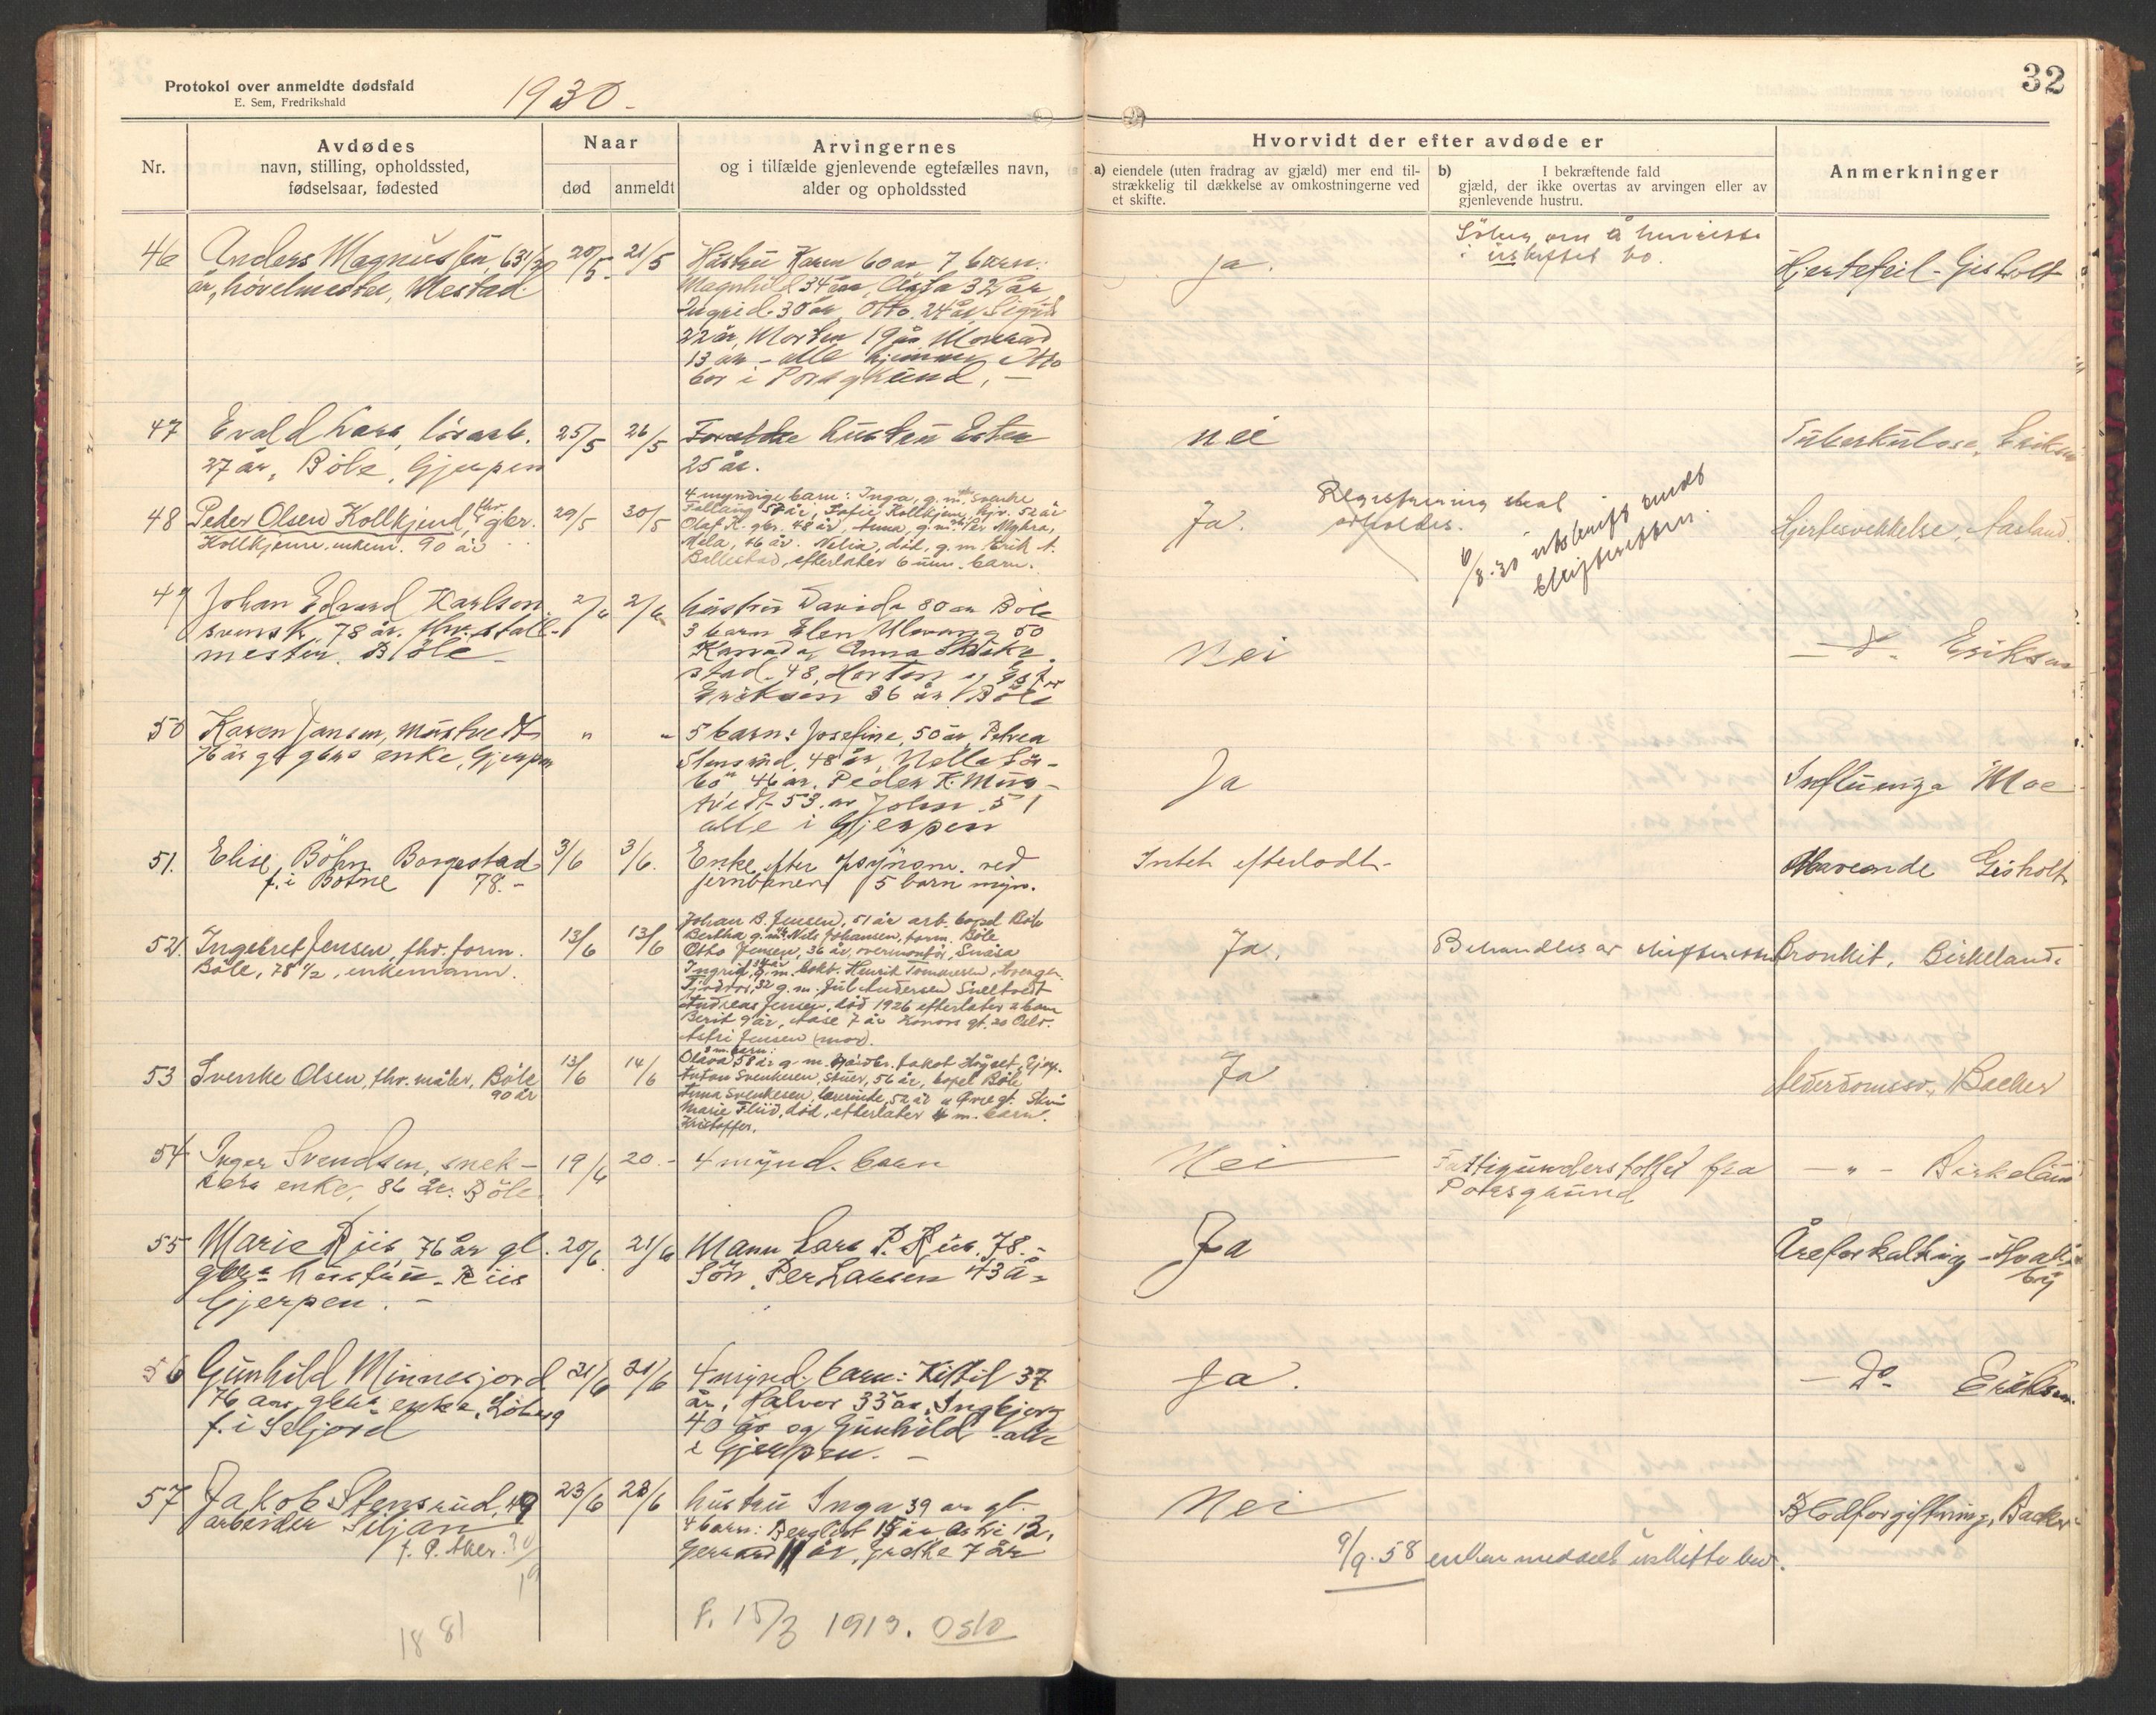 Protokol over anmeldte dødsfald
E. Sem, Fredrikshald
1930.
32
Nr.
Avdødes
navn, stilling, opholdssted,
fødselsaar, fødested
Naar
død
anmeldt
Arvingernes
og i tilfælde gjenlevende egtefælles navn,
alder og opholdssted
Hvorvidt der efter avdøde er
a) eiendele (uten fradrag av gjæld) mer end til-
strækkelig til dækkelse av omkostningerne ved
et skifte.
b) I bekræftende fald
gjæld, der ikke overtas av arvingen eller av
gjenlevende hustru.
Anmerkninger
46
Anders Magnussen, 63½
år, hövelmester, Mestad
20/5
21/5
Hustru Karen 60 år 7 barn:
Magnhild 34 år, Aasta 32 år
Ingrid 30 år, Otto 24 år, Sigrid
22 år, Morten 19 år,
13 år - alle hjemme, Otto
bor i Porsgrund. -
Ja.
i uskiftet bo.
Hjertefeil - Gisholt
47
Evald
27 år, Böle, Gjerpen
25/5
26/5
Foreldre hustru Ester
25 år.
nei
Tuberkulose, Eriksen
48
Peder Olsen Kollkjend, fhv. gbr.
Kollkjenn, enkem. 90 år
29/5
30/5
4 myndige barn: Inga, g. m. Svenke
Olaf K. gbr. 48 år, Anna, g. m.
Mela, 46 år. Nelia, död, g. m. Erik
Ballestad, efterlater 6 um. barn.
Ja.
Registrering skal
avholdes.
6/8.30 utskrift sendt
skifteretten.
Hjertesvekkelse, Aasland.
49
Johan Edvard Karlsen
svensk, 78 år. fhv. stall-
mester. Böle -
2/6
2/6
hustru Davida 80 år Böle
3 barn Elen Ulvang 50
Anna
stad. 48, Horten og Ester
Eriksen 36 år Böle
Nei
- do - Eriksen
50
Karen Jansen, Mustvedt
76 år gl gbrs enke, Gjerpen
"
"
5 barn: Josefine, 50 år, Petrea
Stensrud, 48 år,
bö 46 år. Peder K. Mus-
tvedt 53. år John 51
alle i Gjerpen
Ja
Influenza Moe
51.
Elise Böhn Borgestad
f. i Botne 78. -
3/6
3/6.
Enke efter opsynsm. ved
jernbanen 5 barn myn.
Intet efterladt -
Gisholt
52.
Ingebret Jensen, fhv. form.
Böle, 78½, enkemann.
13/6
13/6
Johan B. Jensen, 51 år arb. bopel Böle
Bertha g. m. Nils Johansen, form. Böle
Otto Jensen, 36 år, vermontör, Snåsa
Ingrid, 34 år g. m. bokt. Henrik Tommesen,
32 g. m. Jul. Andersen Siletvedt
Andreas Jensen, död 1926 efterlater 2 barn
Berit 9 år, Aase 7 år gt. 20 Oslo.
Jensen (mor).
Ja.
Behandles av skifteretten
Bronkit, Birkeland.
53
Svenke Olsen, fhv. måler, Böle
90 år
13/6
14/6
3 m. barn:
Olava 58 år g. m. gårdbr. Jakob Höyset, Gjerp.
Anton Svenkesen, stuer, 56 år, bopel Böle
Anna Svenkesen, lærerinde, 52 år
Marie Fluid, död, efterlater 4 m. barn.
Kristoffer.
Ja
Alderdomssv., Backer
54
Inger Svendsen, snek-
kers enke, 86 år. Böle.
19/6
20 -
4 mynd. barn
Nei
Fattigunderstöttet fra
Porsgrund
- " - Birkeland
55
Marie Riis 76 år gl.
gbrs hustru - Riis
Gjerpen. -
20/6.
21/6
Mann Lars P. Riis. 78. -
Sön Per Larsen 43 å
Ja
Åreforkalkning - Hvalby
56
Gunhild Minnesjord
76 år, gbrs enke, Löberg
f. i Seljord
21/6
21/6
4 mynd. barn: Kittil 37
år, Halvor 33 år, Ingbjörg
40 år og Gunhild - alle
i Gjerpen. -
Ja.
- do - Eriksen.
57
Jakob Stensrud, 49
arbeider Siljan
f. Ø. Aker.
1881
23/6
23/6
hustru Inga 39 år gl.
4 barn: Bergliot 15 år Astri 13,
11 år, Grethe 7 år
15/3 1913. Oslo
Nei
9/9.58 enken meddelt uskiftebev.
Blodforgiftning, Backer